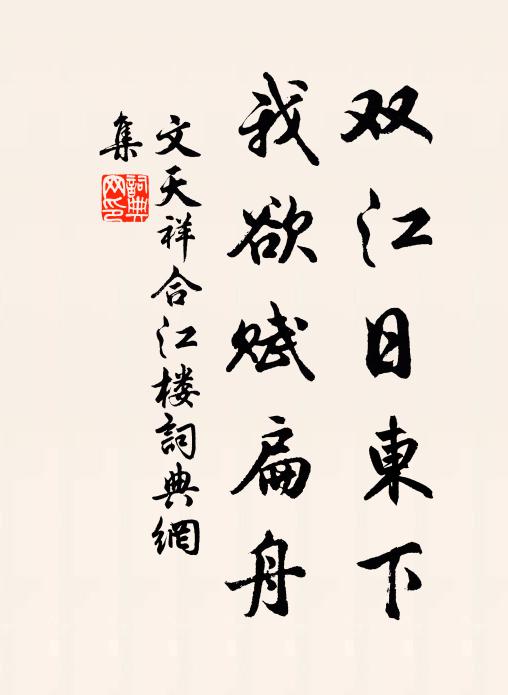 双江日東下
我欲赋扁舟
文天祥合江楼詞典網
集
詞典網印